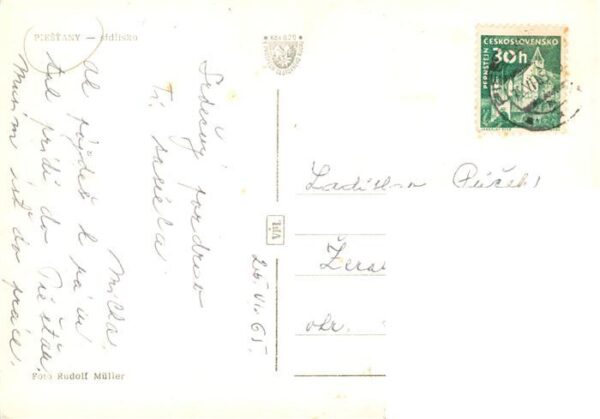 PIEŠŤANY — sídlisko
Srdečný pozdrav
Ti zasiela
Milka.
Ak pôjdeš k nám
tak prídi do Piešťan.
Musím ísť do práce.
26. VI. 65.
Foto Rudolf Müller
VPL
ČESKOSLOVENSKO
PERNŠTEJN
30h
Ladislav
Žera
okr.